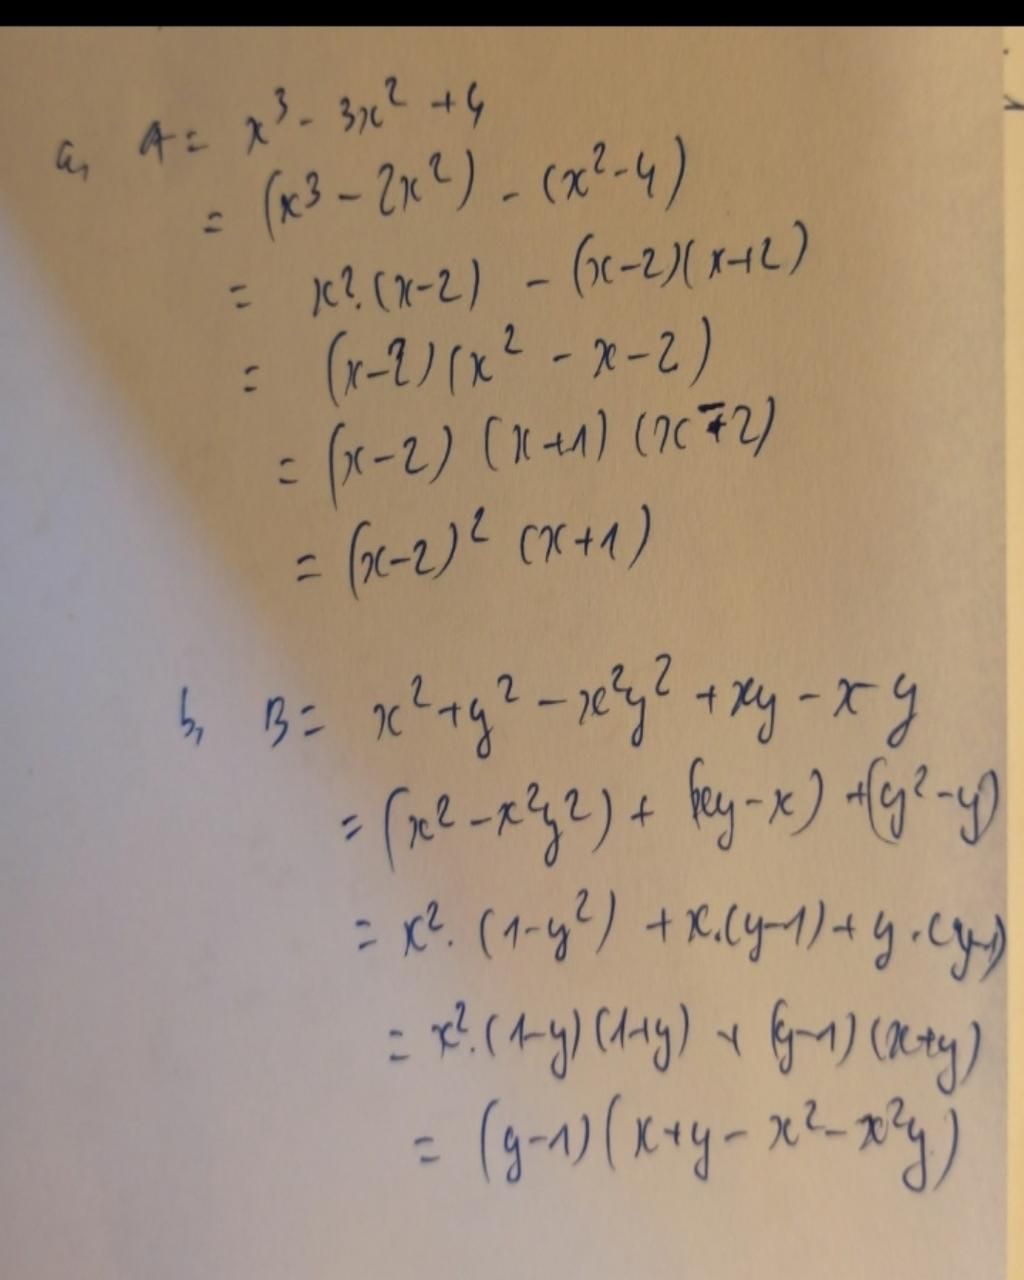 a, A = x³ - 3x² + 4
= (x³ - 2x²) - (x² - 4)
= x². (x-2) - (x-2)(x+2)
= (x-2)(x² - x - 2)
= (x-2) (x+1) (x-2)
= (x-2)² (x+1)
b, B = x² + y² - x²y² + xy - x - y
= (x² - x²y²) + (xy - x) + (y² - y)
= x². (1-y²) + x.(y-1) + y.(y-1)
= x².(1-y)(1+y) + (y-1)(x+y)
= (y-1)(x+y - x² - x²y)